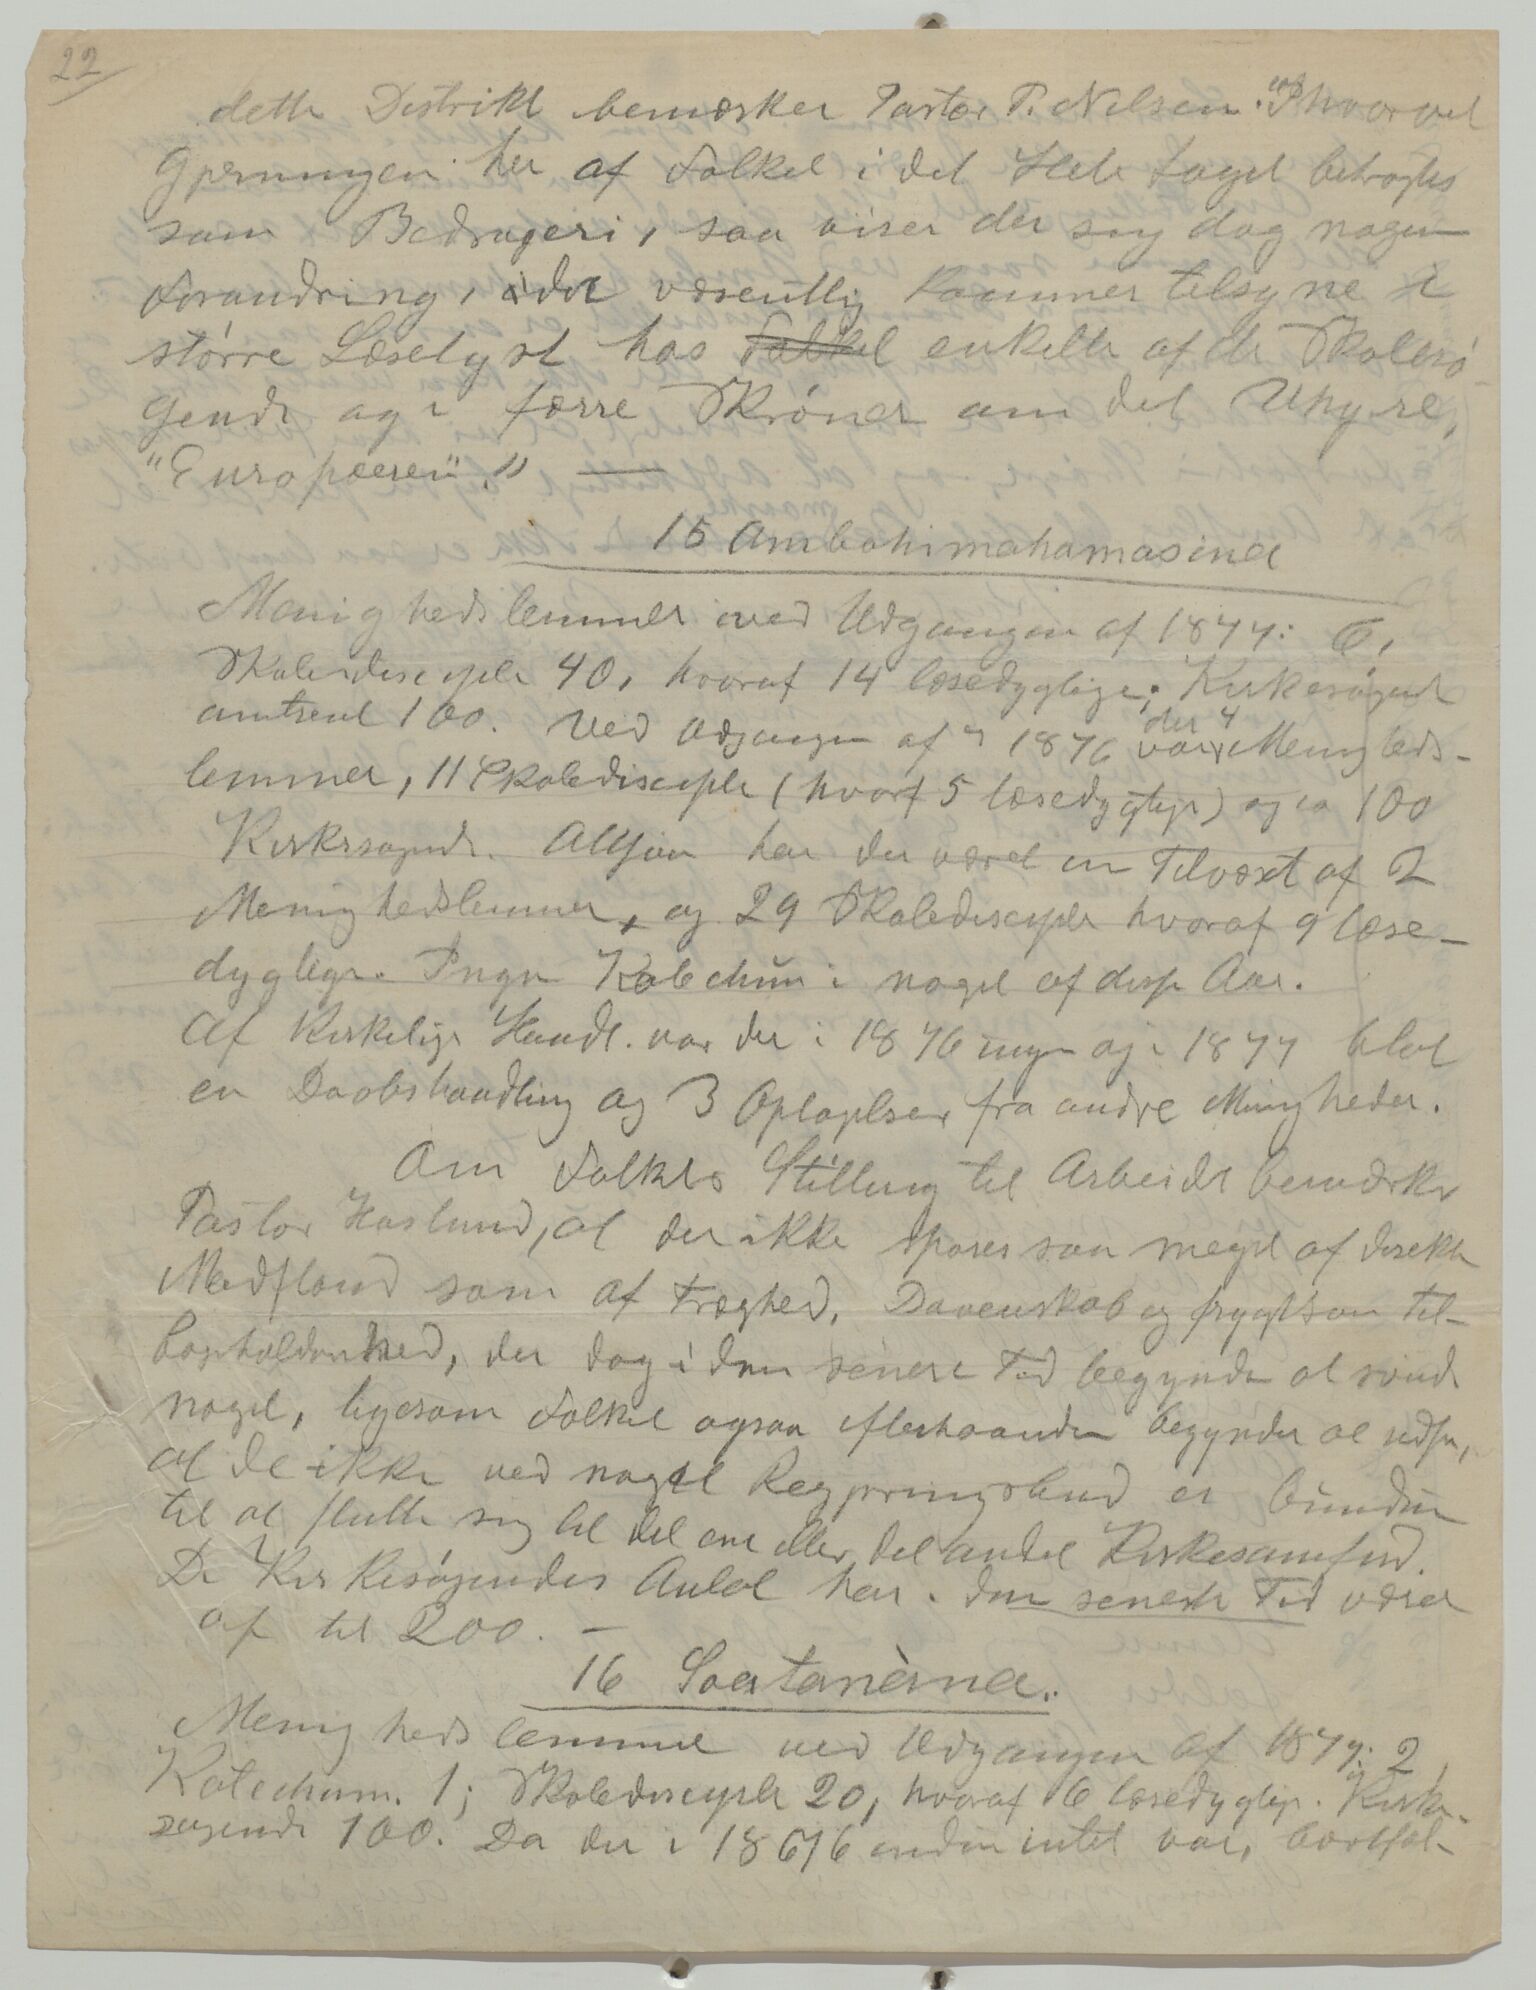 22
dette Distrikt bemærker Pastor P. Nilsen: "Ihvorvel
Gjerningen her af Folket i det Hele taget betragtes
som Bedrageri, saa viser der sig dog nogen
Forandring, idet væsentlig kommer tilsyne i
større Læselyst hos Folket enkelte af de Skolesø-
gende og i færre Skrøner om det Uhyre,
"Europæeren"." —
15 Ambohimahamasina
Menighedslemmer ved Udgangen af 1877: 6,
Skoledisciple 40, hvoraf 14 læsedygtige; Kirkesøgende
omtrent 100. Ved Udgangen af 1876 var der 4 Menigheds-
lemmer, 11 Skoledisciple (hvoraf 5 læsedygtige) og ca 100
Kirkesøgende. Altsaa har der været en Tilvæxt af 2
Menighedslemmer, og 29 Skoledisciple hvoraf 9 læse-
dygtige. Ingen Katechum i noget af disse Aar.
Af Kirkelige Handl. var der i 1876 ingen og i 1877 blot
en Daabshandling og 3 Optagelser fra andre Menigheder.
Om Folkets Stilling til Arbeidet bemærker
Pastor Haslund, at der ikke spores saa meget af direkte
Modstand som af Træghed, Dovenskab og frygtsom til-
bageholdenhed, der dog i den senere Tid begynder at svinde
noget, ligesom Folket ogsaa efterhaanden begynder at indse,
at de ikke ved noget Regjeringsbud er bundne
til at slutte sig til det ene eller det andet Kirkesamfund.
De Kirkesøgendes Antal har i den seneste Tid været
af til 200. —
16 Soatanàna.
Menighedslemmer ved Udgangen af 1877: 2,
Katechum. 1; Skoledisciple 20, hvoraf 6 læsedygtige. Kirke-
søgende 100. Da der i 1876 endnu intet var, bortfal-